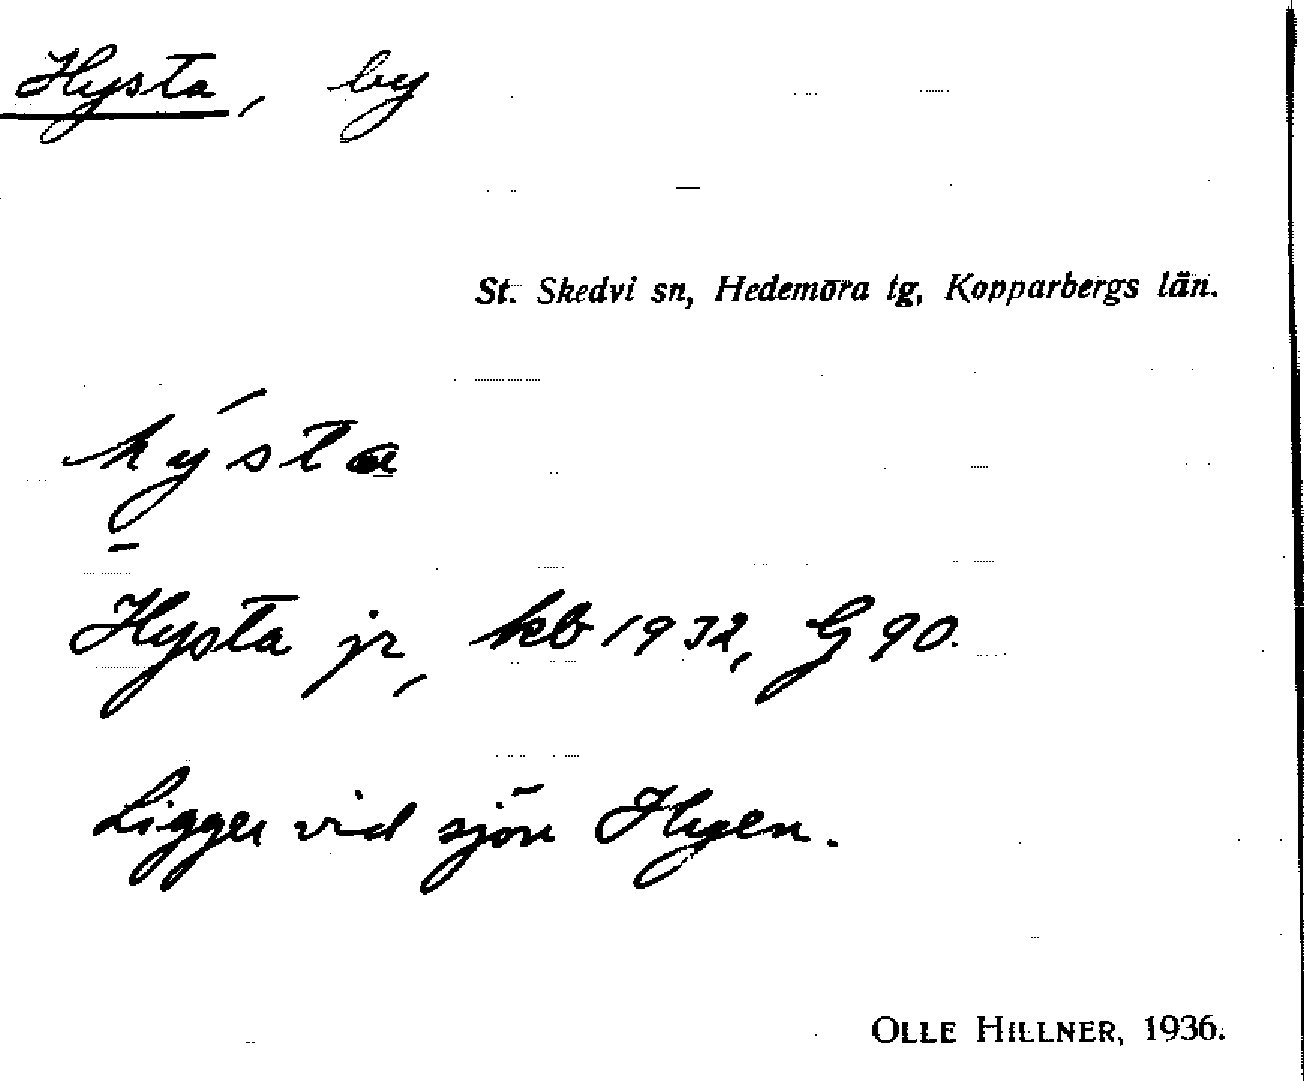 Hysta, by
St. Skedvi sn, Hedemora tg, Kopparbergs län.
hý̱sta
Hysta jr, kb 1932, G 90.
Ligger vid sjön Hyen.
OLLE HILLNER, 1936.